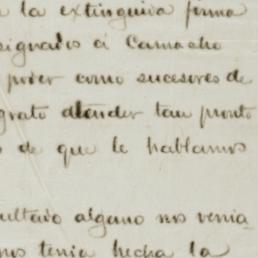 la extinguida firma
signados á Camacho
poder como sucesores de
grato atender tan pronto
de que le hablamos
resultado alguno nos venia
nos tenia hecha la